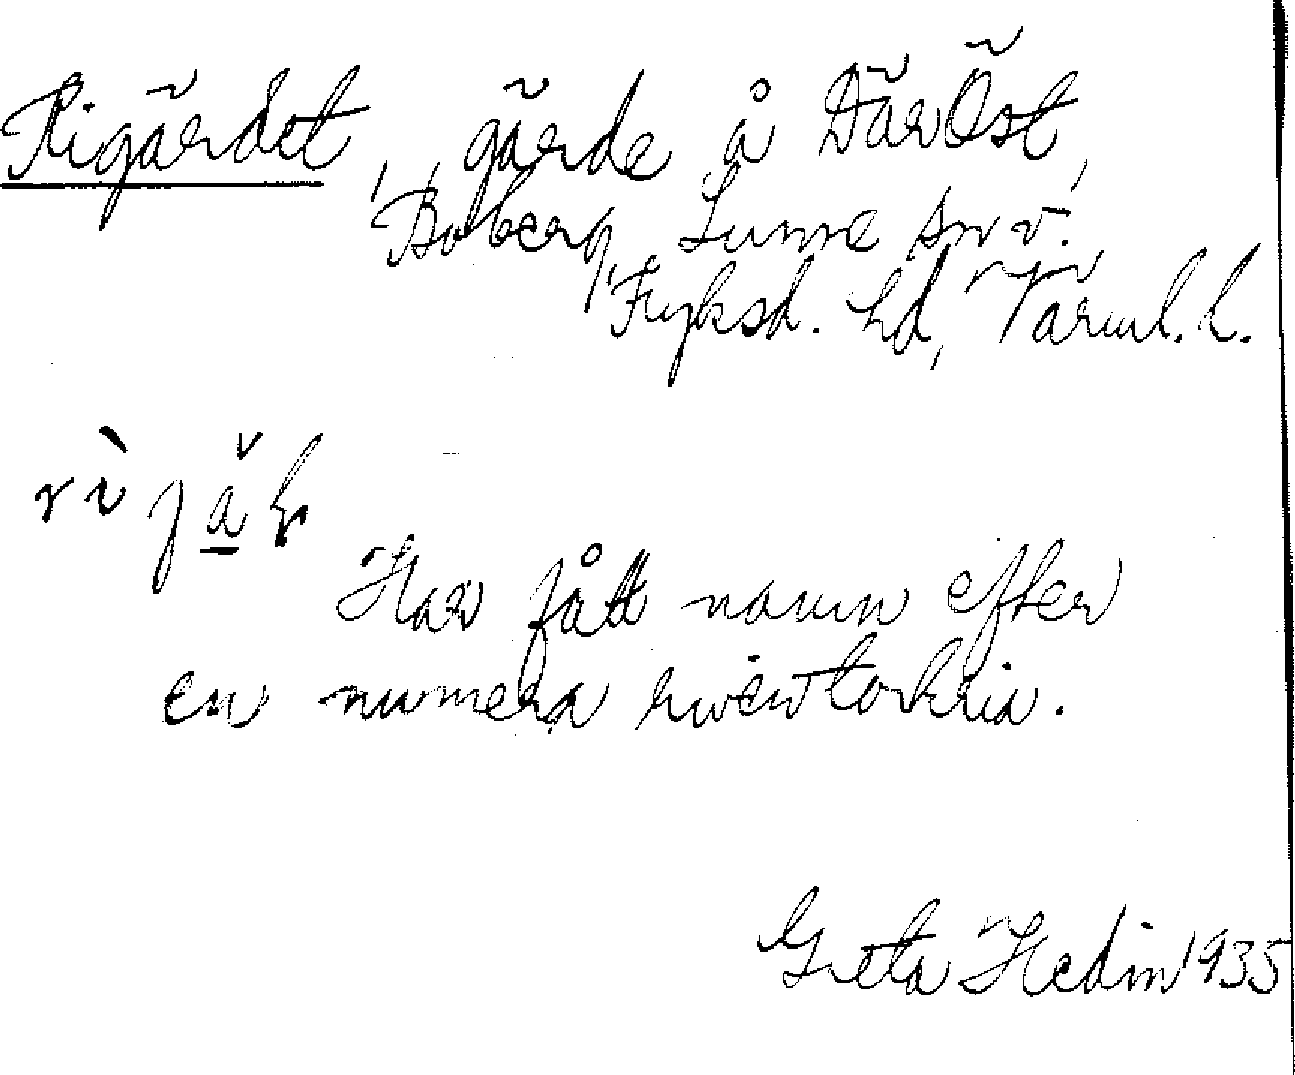 Rigärdet, gärde å Där Öst,
Boberg, Sunne sn v.,
Fryksd. hd, Värml. l.
Har fått namn efter
en numera riven torkria.
Greta Hedin 1935